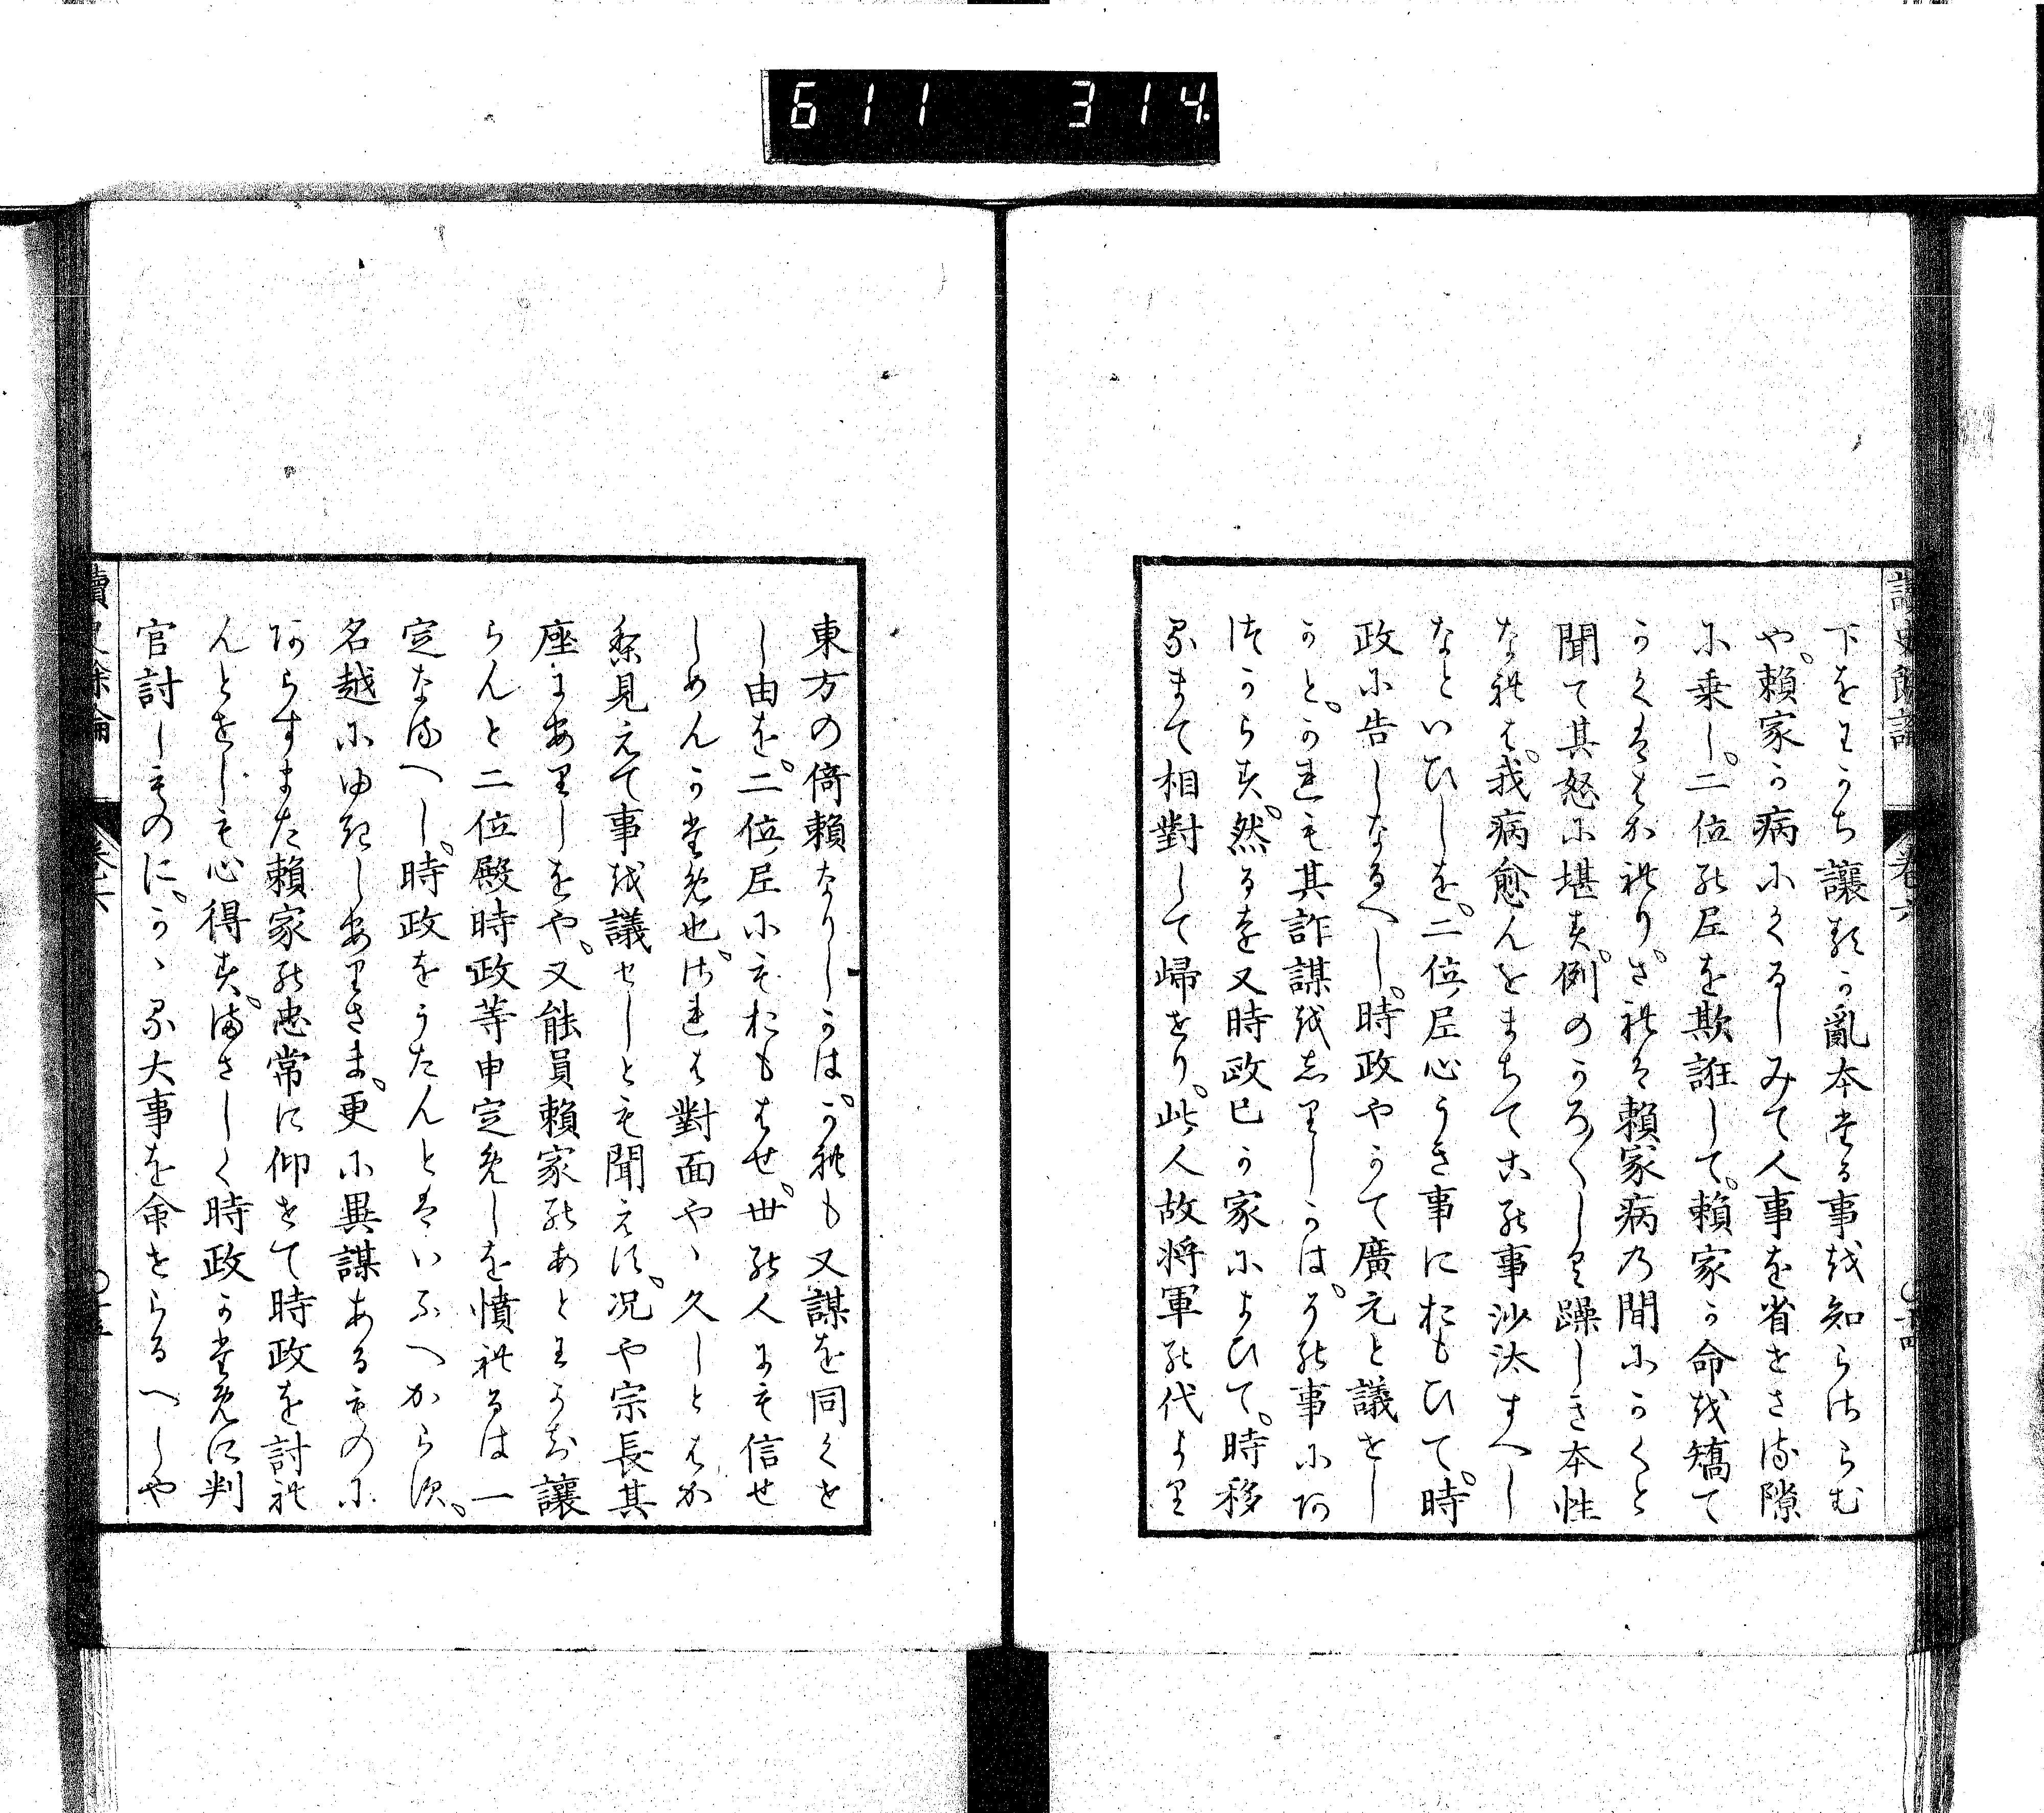 611 314
讀史餘論 卷六 〇十四
下をわかち讓るか亂本たる事を知らさらむ
や。賴家か病にくるしみて人事を省せさる隙
に乗し。二位の尼を欺誑して。賴家か命を矯て
かくははかれり。されは賴家病の間にかくと
聞て其怒に堪す。例のかろ〱しり躁しき本性
なれは。我病愈んをまちてこの事沙汰すへし
なといひしを。二位尼心うき事におもひて。時
政に告しなるへし。時政やかて廣元と議せし
かと。かれも其詐謀をしりしかは。うの事にあ
つからす。然るを又時政已か家によひて。時移
るまて相對して歸せり。此人故将軍の代より
東方の倚賴なりしかは。かれも又謀を同くせ
し由を。二位尼にもおもはせ。世の人にも信せ
しめんかため也。されは對面やゝ久しとはか
り見えて事を議せしとも聞えす。況や宗長其
座にありしをや。又能員賴家のあとわかち讓
らんと二位殿時政等申定めしを憤れるは一
定なるへし。時政をうたんとはいふへからす。
名越にゆきしありさま。更に異謀あるものに
あらすまた賴家の忠常に仰せて時政を討れ
んとせしも心得す。まさしく時政かために判
官討しものに。かゝる大事を命せらるへしや
讀史餘論 卷六 〇十五